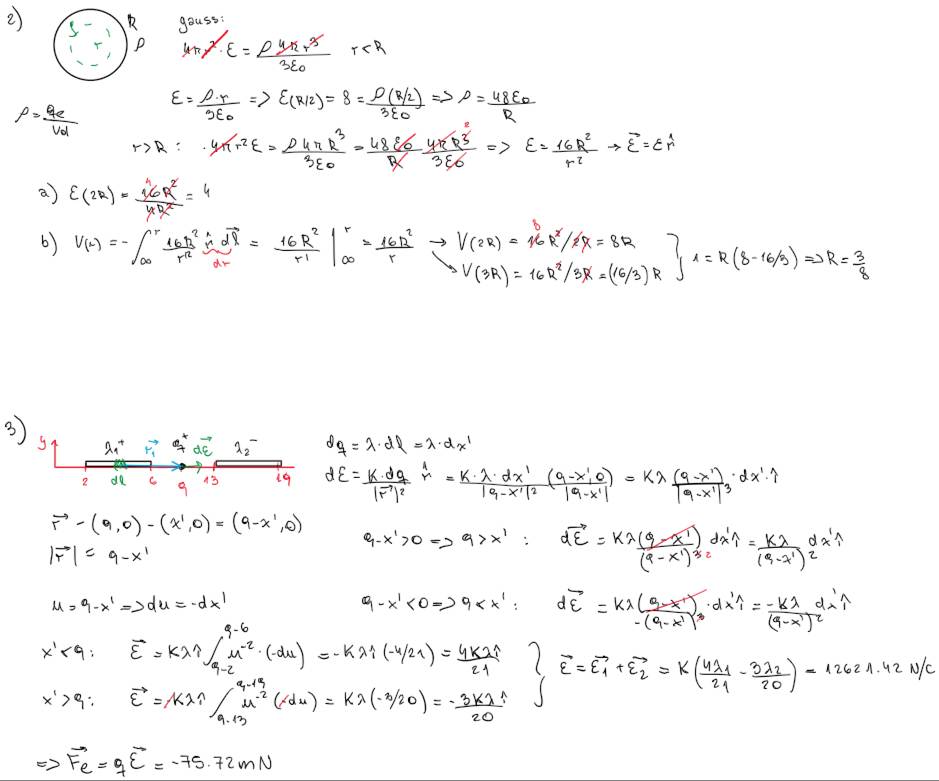 2) R gauss:
ρ r ρ 4πr²·E = ρ4πr³/3ε0 r<R
E = ρ·r/3ε0 => E(R/2) = 8 = ρ(R/2)/3ε0 => ρ = 48ε0/R
ρ = qe/Vol
r>R: 4πr²E = ρ4πR³/3ε0 = 48ε0/R 4πR³/3ε0 => E = 16R²/r² → E⃗ = E r̂
a) E(2R) = 16R²/4R² = 4
b) V(r) = -∫∞^r 16R²/r'² r̂ dl⃗ = 16R²/r' |∞^r = 16R²/r → V(2R) = 16R²/2R = 8R
dr → V(3R) = 16R²/3R = (16/3)R } 1 = R(8-16/3) => R = 3/8
3) y λ1+ r⃗1 q+ dE⃗ λ2-
2 dl 6 9 13 19
dq = λ·dl = λ·dx'
dE = K·dq/|r⃗|² r̂ = K·λ·dx'/|9-x'|² (9-x',0)/|9-x'| = Kλ (9-x')/|9-x'|³ ·dx'·î
r⃗ - (9,0) - (x',0) = (9-x',0)
|r⃗| = 9-x'
9-x'>0 => 9>x': dE⃗ = Kλ(9-x')/(9-x')³ dx'î = Kλ/(9-x')² dx'î
u = 9-x' => du = -dx'
9-x'<0 => 9<x': dE⃗ = Kλ(9-x')/-(9-x')³ ·dx'î = -Kλ/(9-x')² dx'î
x'<9: E⃗ = Kλî ∫9-2^9-6 u⁻²·(-du) = -Kλî(-4/21) = 4Kλî/21
x'>9: E⃗ = -Kλî ∫9-13^9-19 u⁻²(-du) = Kλ(-3/20) = -3Kλî/20
} E⃗ = E⃗1 + E⃗2 = K(4λ1/21 - 3λ2/20) = 12621.42 N/C
=> F⃗e = qE⃗ = -75.72mN